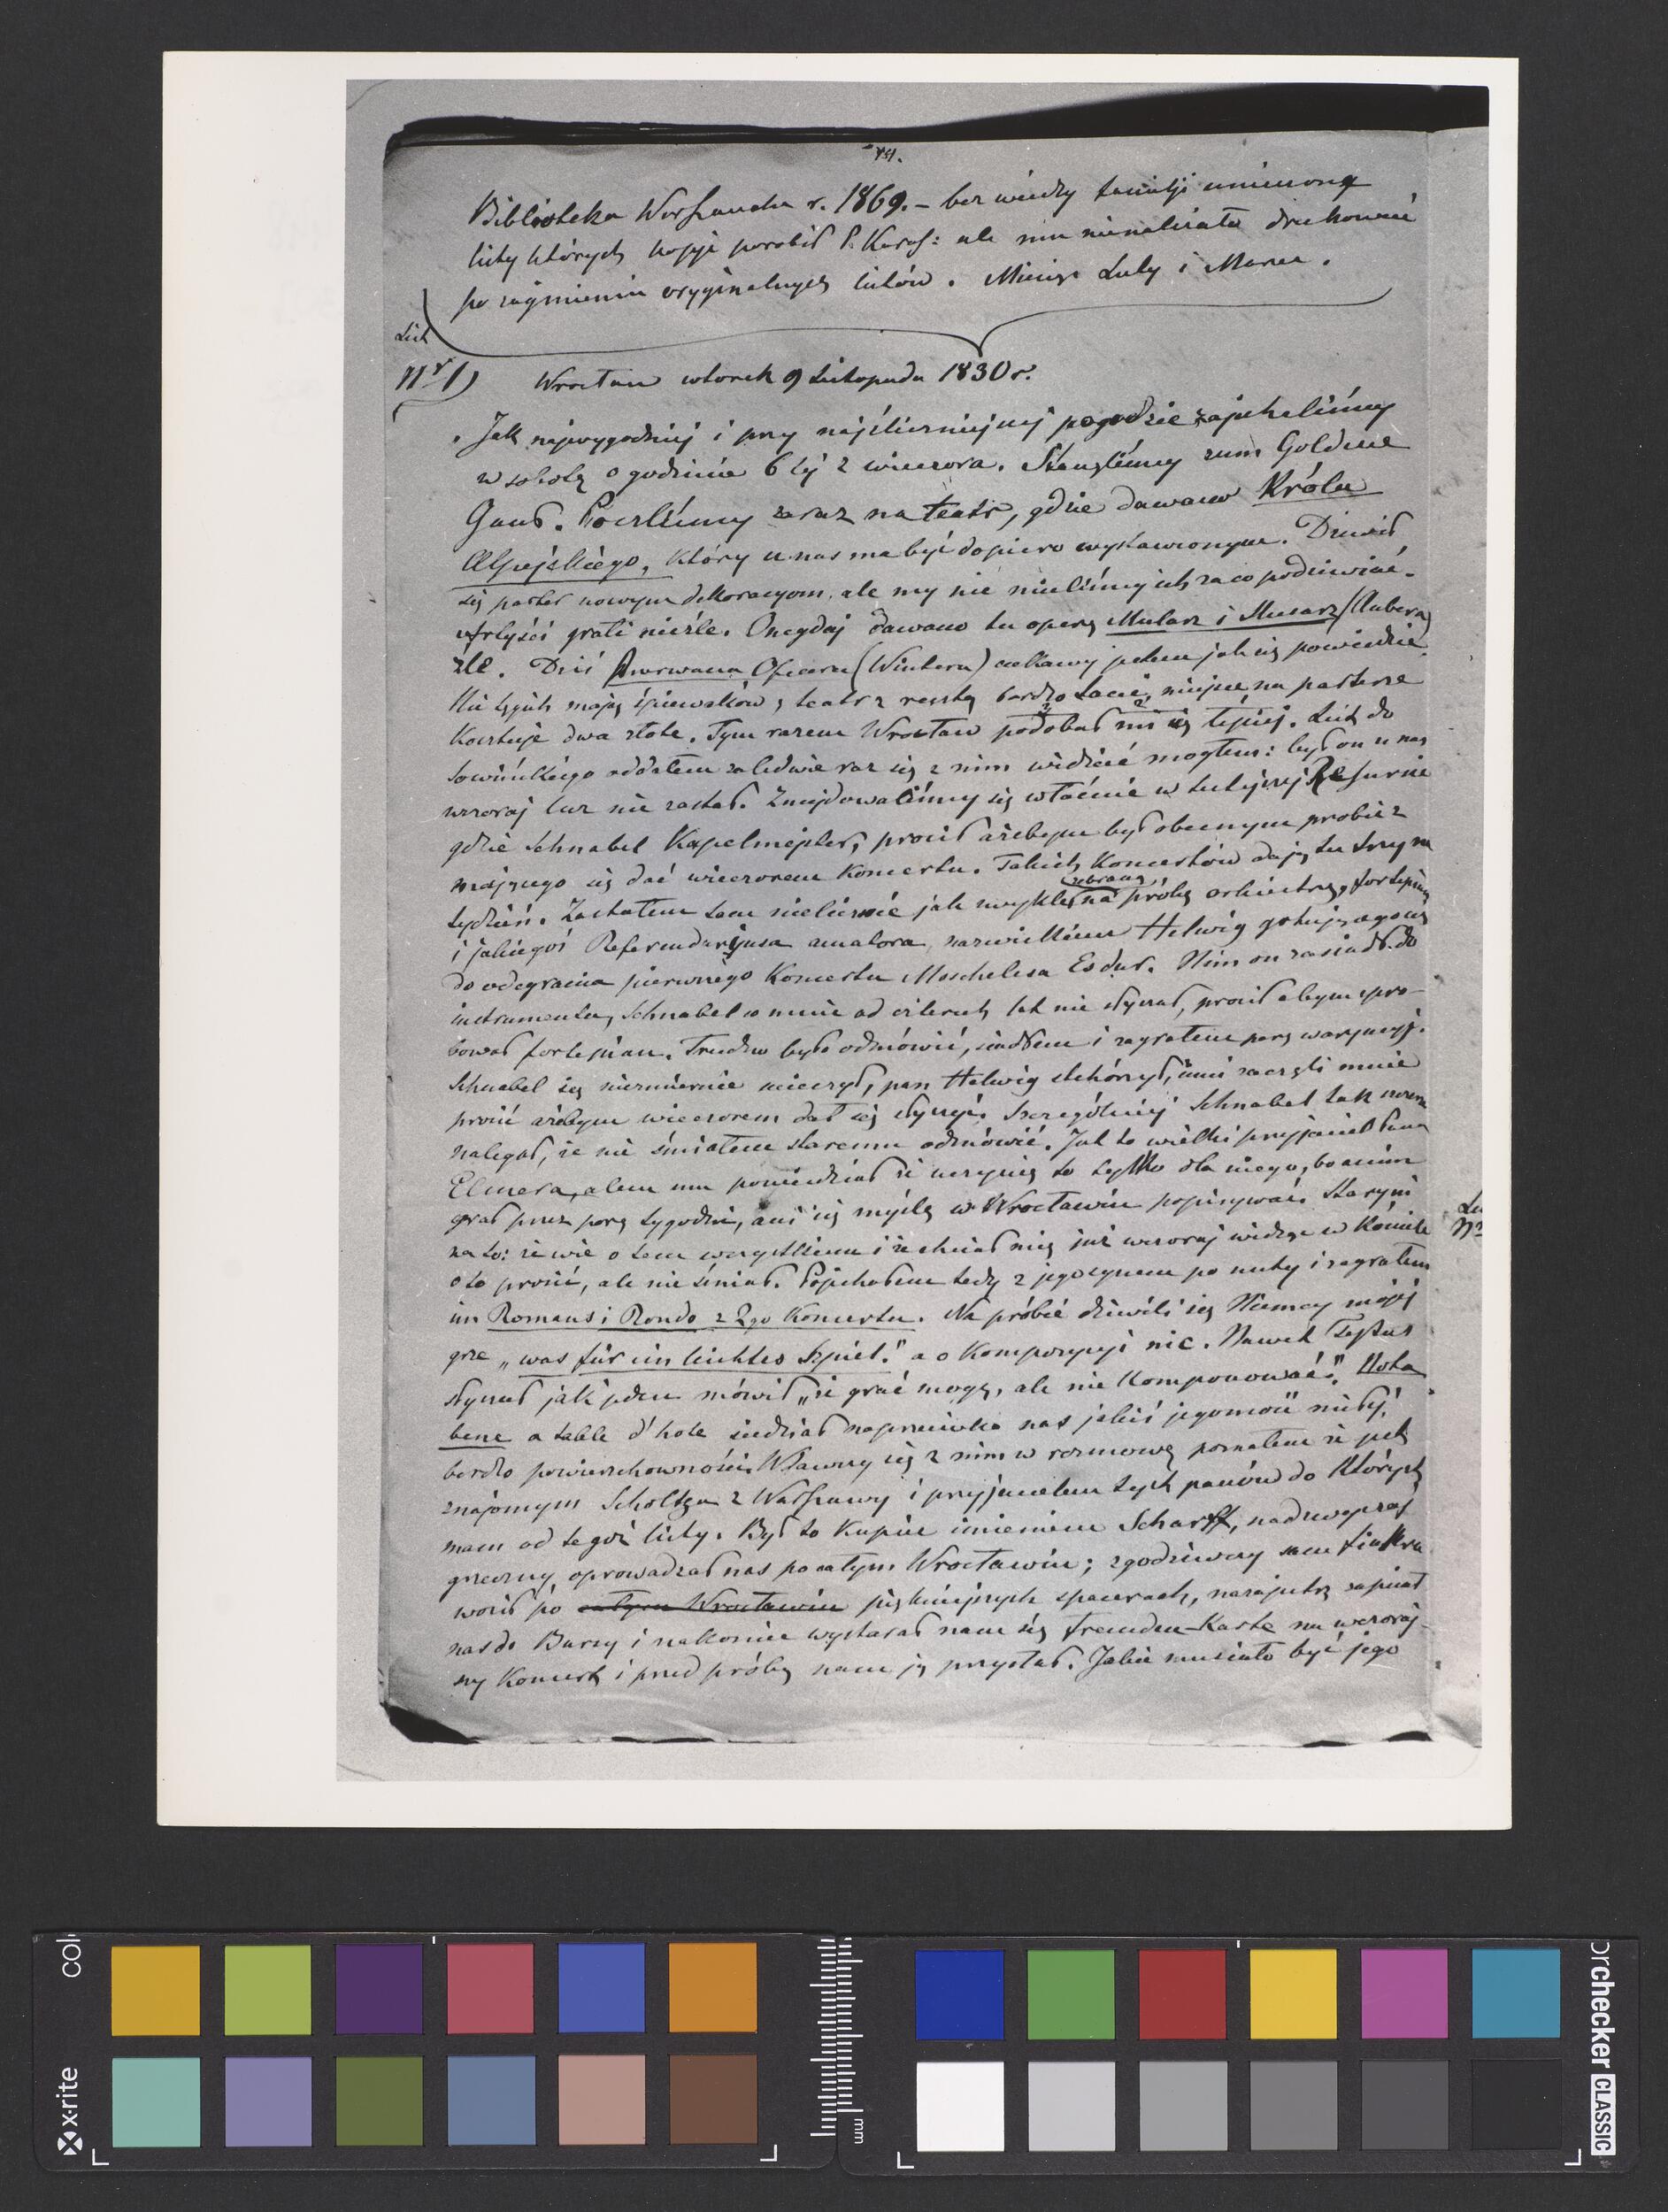 151.
Biblioteka Warszawska r. 1869. – bez wiedzy familji umieszczono
listy których kopje porobił P. Karas: ale mu nienależało drukować
po zaginieniu oryginalnych listów. Miesiąc Luty i Marzec.
List
Nr 1) Wrocław wtorek 9 Listopada 1830 r.
Jak najwygodniej i przy najśliczniejszej pogodzie zajechaliśmy
w sobotę o godzinie 6tej z wieczora. Stanęliśmy zum Goldene
Gans. Poszliśmy zaraz na teatr, gdzie dawano Króla
Alpejskiego, który u nas ma być dopiero wystawionym. Dziwił
się parter nowym dekoracyom, ale my nie mieliśmy ich za co podziwiać.
Artyści grali nieźle. Onegdaj dawano tu operę Mularz i Ślusarz (Aubera)
źle. Dziś Przerwana Ofiara (Wintera) ciekawy jestem jak się powiedzie.
Nie tęgich mają śpiewaków, teatr z resztą bardzo tani, miejsce na parterze
kosztuje dwa złote. Tym razem Wrocław podobał mi się lepiej. List do
Sowińskiego oddałem zaledwie raz się z nim widzieć mogłem: był on u nas
wczoraj lecz nie zastał. Znajdowaliśmy się właśnie w tutejszej Resursie
gdzie Schnabel Kapelmejster, prosił ażebym był obecnym próbie z
mającego się dać wieczorem Koncertu. Takich Koncertów dają tu trzy na
tydzień. Zastałem tam nielicznie jak zwykle zebraną na próbę orkiestrę, fortepian
i jakiegoś Referendaryusza amatora, nazwiskiem Helwig gotującego się
do odegrania pierwszego Koncertu Moschelesa Es dur. Nim on zasiadł do
instrumentu, Schnabel co mnie od czterech lat nie słyszał, prosił abym spró-
bował fortepian. Trudno było odmówić, siadłem i zagrałem parę waryacyj.
Schnabel się niezmiernie ucieszył, pan Helwig stchórzył, inni zaczęli mnie
prosić ażebym wieczorem dał się słyszyć. Szczególniej Schnabel tak szczerze
nalegał, że nie śmiałem staremu odmówić. Jest to wielki przyjaciel Pana
Elsnera, alem mu powiedział że uczynię to tylko dla niego, bo anim
grał przez parę tygodni, ani się myślę w Wrocławiu popisywać. Stary mi
na to: że wie o tem wszystkiem i że chciał mię już wczoraj widząc w Kościele
o to prosić, ale nie śmiał. Pojechałem tedy z jego synem po nuty i zagrałem
im Romans i Rondo z 2go Koncertu. Na próbie dziwili się Niemcy mojej
grze „was für ein leichtes Spiel." a o Kompozycyi nic. Nawet Tytus
słyszał jak jeden mówił „że grać mogę, ale nie Komponować". Nota
bene a table d'hote siedział naprzeciwko nas jakiś jegomość miłej
bardzo powierzchowności. Wdawszy się z nim w rozmowę poznałem że jest
znajomym Scholtza z Warszawy i przyjacielem tych panów do Których
mam od tegoż listy. Był to Kupiec imieniem Scharff, nadzwyczaj
grzeczny oprowadzał nas po całym Wrocławiu; zgodziwszy sam fiakra
woził po całym Wrocławiu piękniejszych spacerach, nazajutrz zapisał
nas do Bursy i nakoniec wystarał nam się Fremden-Karte na wczoraj-
szy Koncert i przed próbą nam ją przysłał. Jakie musiało być jego